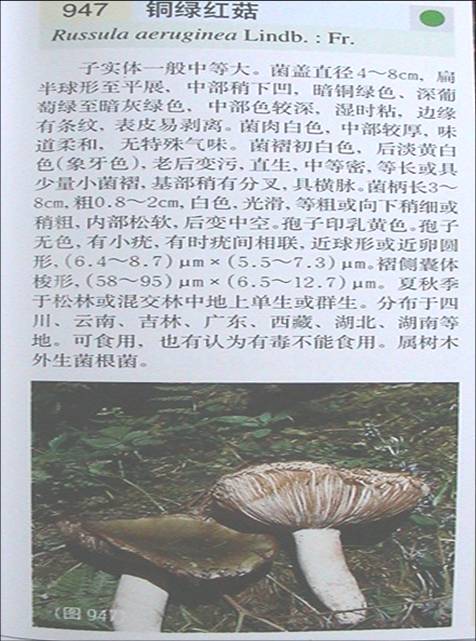 947 铜绿红菇
Russula aeruginea Lindb. : Fr.
子实体一般中等大。菌盖直径4～8cm, 扁
半球形至平展, 中部稍下凹, 暗铜绿色、深葡
萄绿至暗灰绿色, 中部色较深, 湿时粘, 边缘
有条纹, 表皮易剥离。菌肉白色, 中部较厚, 味
道柔和, 无特殊气味。菌褶初白色, 后淡黄白
色(象牙色), 老后变污, 直生, 中等密, 等长或具
少量小菌褶, 基部稍有分叉, 具横脉。菌柄长3～
8cm, 粗0.8～2cm, 白色, 光滑, 等粗或向下稍细或
稍粗, 内部松软, 后变中空。孢子印乳黄色。孢子
无色, 有小疣, 有时疣间相联, 近球形或近卵圆
形, (6.4～8.7) μm×(5.5～7.3) μm。褶侧囊体
梭形, (58～95) μm×(6.5～12.7) μm。夏秋季
于松林或混交林中地上单生或群生。分布于四
川、云南、吉林、广东、西藏、湖北、湖南等
地。可食用, 也有认为有毒不能食用。属树木
外生菌根菌。
(图 947)